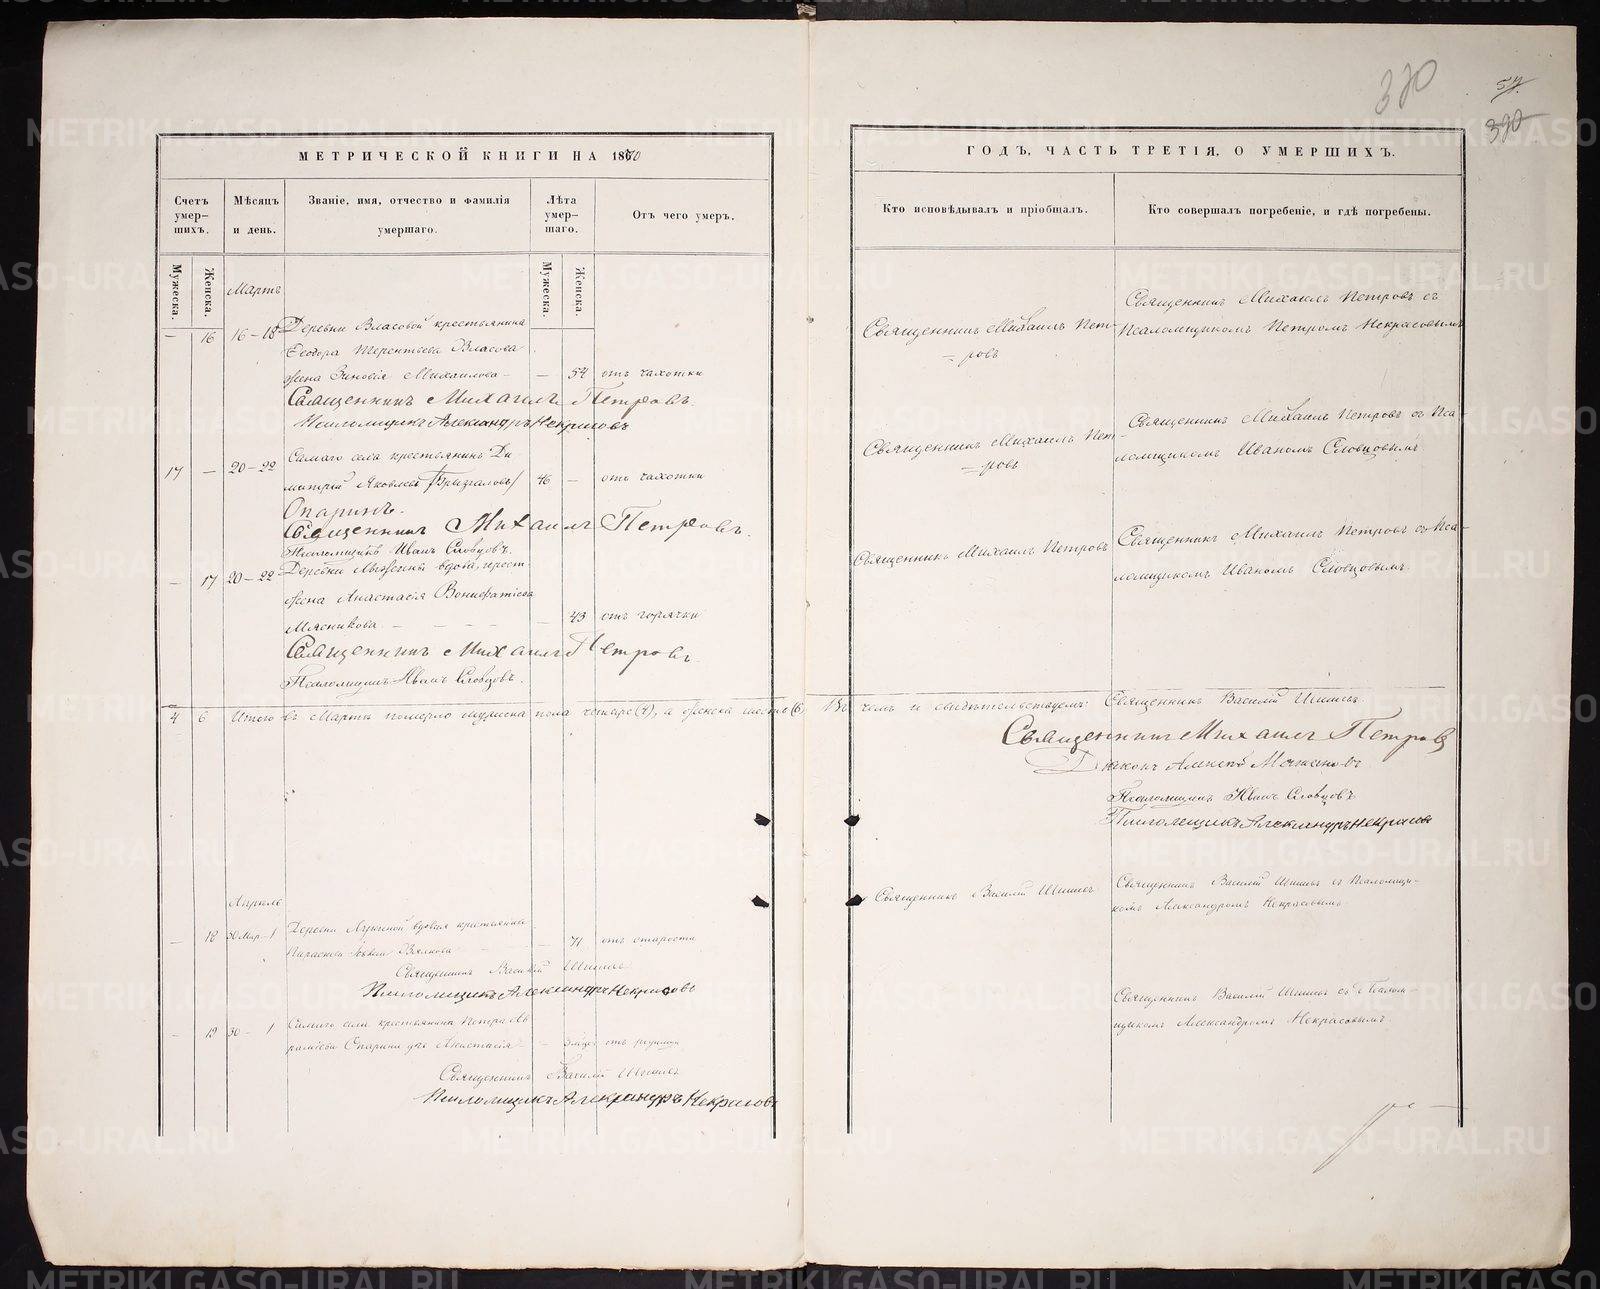 370
57
390
МЕТРИЧЕСКОЙ КНИГИ НА 1870
ГОДЪ, ЧАСТЬ ТРЕТІЯ, О УМЕРШИХЪ.
Счетъ умер-шихъ.
Мѣсяцъ и день.
Званіе, имя, отчество и фамилія умершаго.
Лѣта умер-шаго.
Отъ чего умеръ.
Кто исповѣдывалъ и пріобщалъ.
Кто совершалъ погребеніе, и гдѣ погребены.
Мужеска.
Женска.
Мужеска.
Женска.
Мартъ
— 16 16–18 Деревни Власовой крестьянина
Ѳеодора Терентьева Власова
жена Зиновія Михаилова — — 54 отъ чахотки
Священникъ Михаилъ Пет-
=ровъ
Священникъ Михаилъ Петровъ съ
Псаломщикомъ Петромъ Некрасовымъ
Священникъ Михаилъ Петровъ.
Псаломщикъ Александръ Некрасовъ
17 — 20–22 Самаго села крестьянинъ Ди
митрій Яковлевъ 46 — отъ чахотки
Опаринъ.
Священникъ Михаилъ Пет-
=ровъ
Священникъ Михаилъ Петровъ съ Пса
ломщикомъ Иваномъ Словцовымъ
Священникъ Михаилъ Петровъ.
Псаломщикъ Иванъ Словцовъ.
— 17 20–22 Деревни вдова, крест.
жена Анастасія Вонифатіева
Мясникова — — — — 43 отъ горячки
Священникъ Михаилъ Петровъ
Священникъ Михаилъ Петровъ съ Пса-
ломщикомъ Иваномъ Словцовымъ.
Священникъ Михаилъ Петровъ.
Псаломщикъ Иванъ Словцовъ.
4 6 Итого въ Мартѣ померло мужеска пола четыре (4), а женска шесть (6). Въ чемъ и свидѣтельствуемъ: Священникъ Василій Шишевъ.
Священникъ Михаилъ Петровъ
Діаконъ Алексѣй
Псаломщикъ Иванъ Словцовъ
Псаломщикъ Александръ Некрасовъ
Апрѣль
— 18 30 Мар–1 Деревни вдовая крестьянка
Параскева — 71 отъ старости
Священникъ Василій Шишевъ
Священникъ Василій Шишевъ съ Псаломщи-
комъ Александромъ Некрасовымъ
Священникъ Василій Шишевъ
Псаломщикъ Александръ Некрасовъ
— 19 30 – 1 Самаго села крестьянина Петра Ав
раміева Опарина дчь Анастасія — отъ родимца
Священникъ Василій Шишевъ съ Псалом-
щикомъ Александромъ Некрасовымъ.
Священникъ Василій Шишевъ
Псаломщикъ Александръ Некрасовъ
METRIKI.GASO-URAL.RU